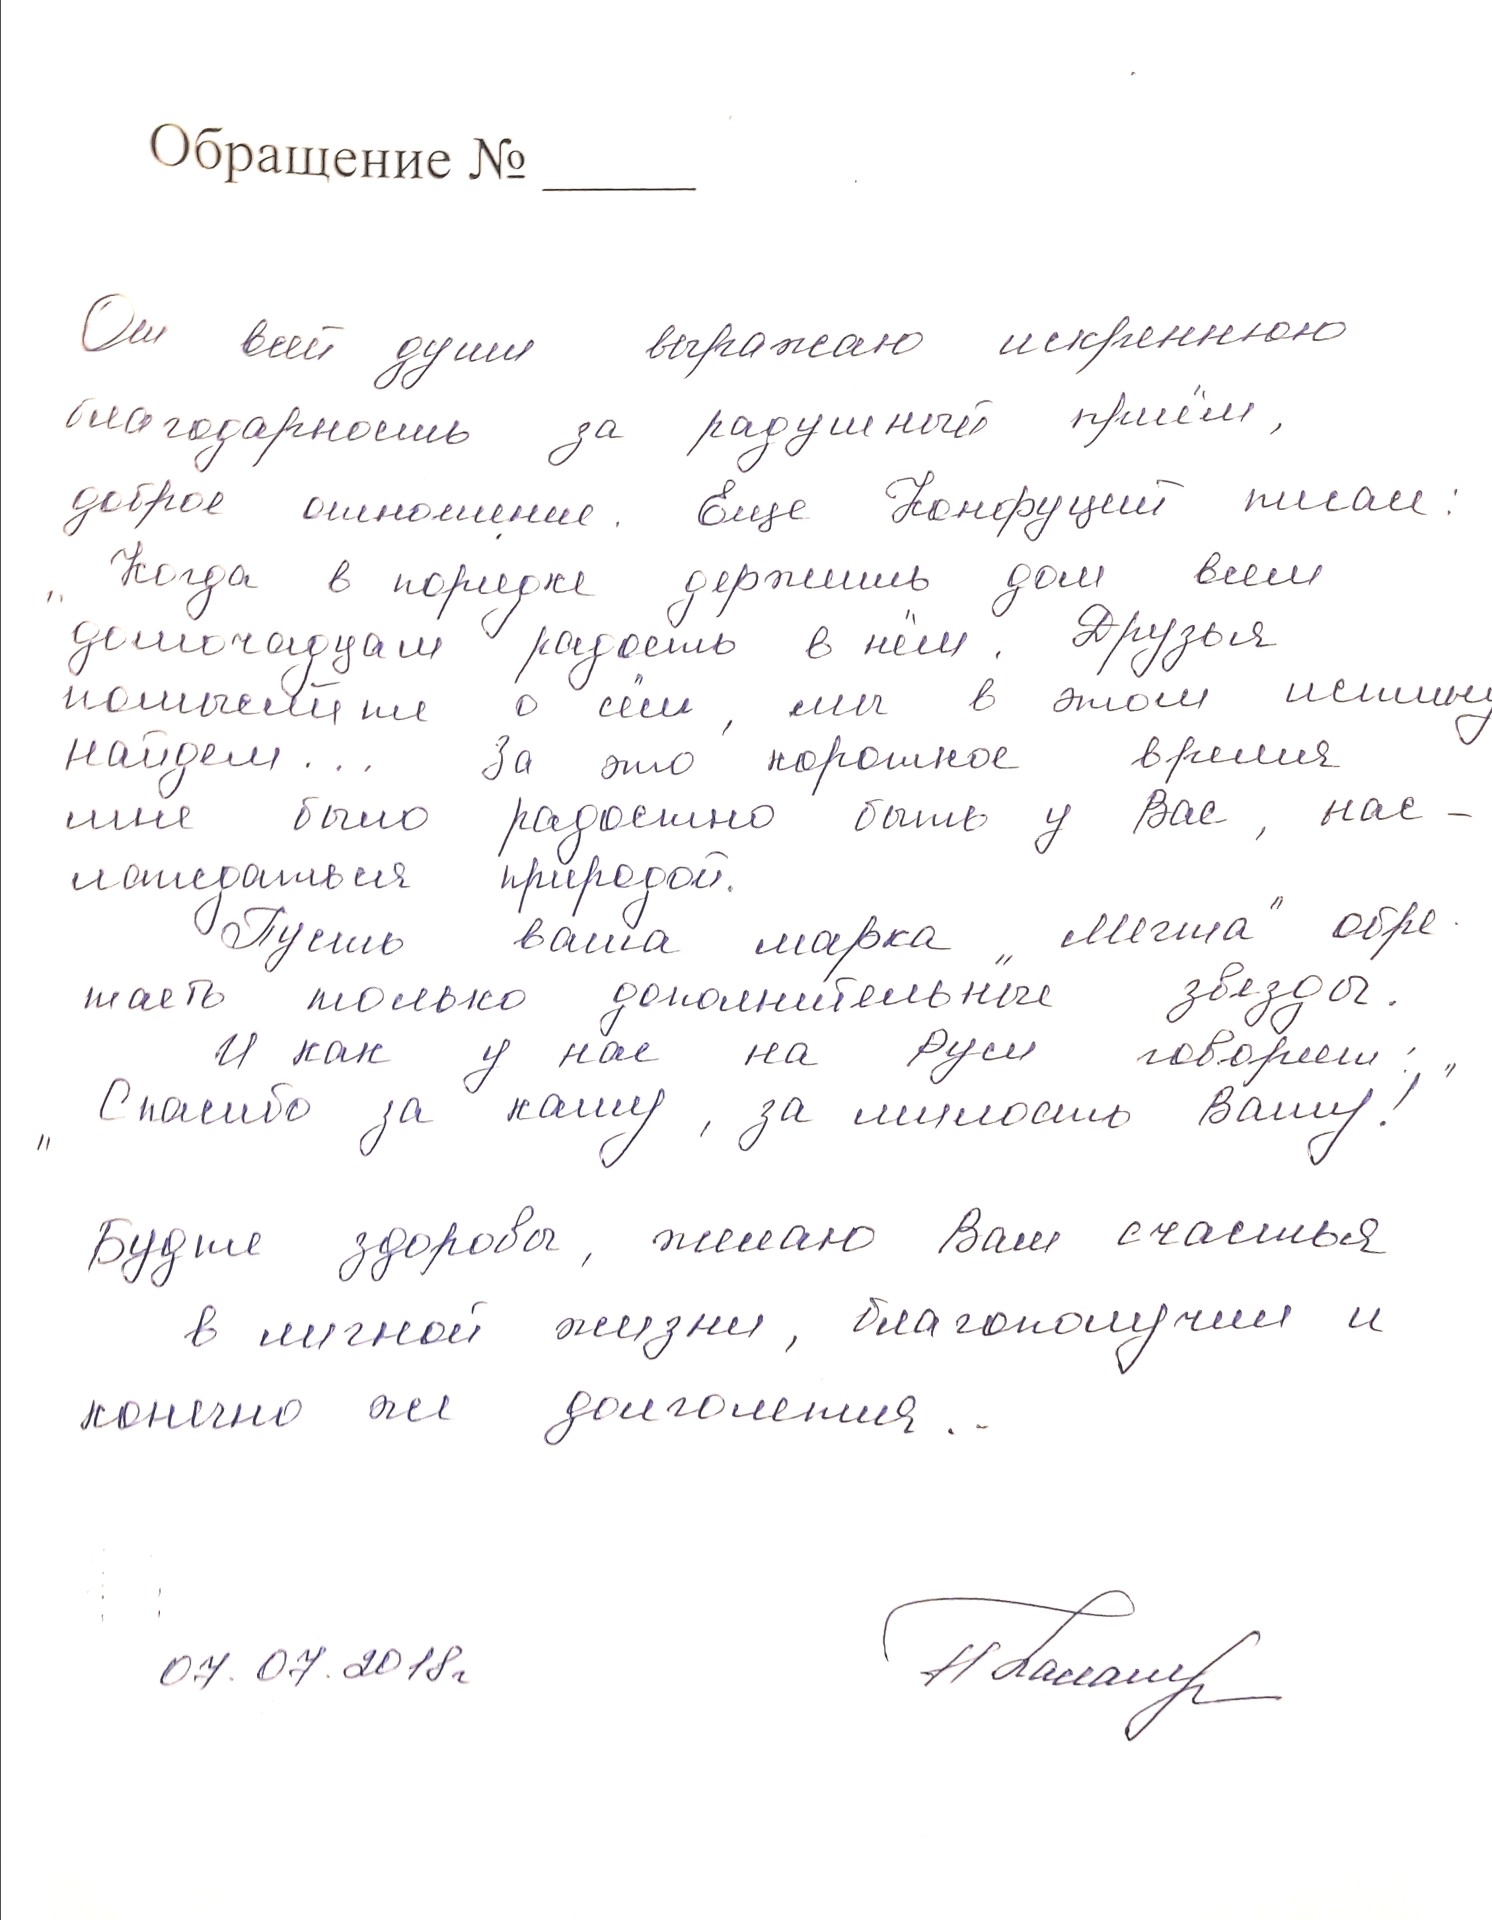 Обращение № _____
От всей души выражаю искреннюю
благодарность за радушный приём,
доброе отношение. Еще Конфуций писал:
„Когда в порядке держишь дом всем
домочадцам радость в нём. Друзья
помыслите о сём, мы в этом истину
найдем... За это короткое время
мне было радостно быть у Вас, нас-
лаждаться природой.
Пусть ваша марка „Мечта" обре-
таеть только дополнительные звезды.
И как у нас на Руси говорят: „
„Спасибо за кашу, за милость Вашу!"
Будте здоровы, желаю Вам счастья
в личной жизни, благополучии и
конечно же долголетия...
07.07.2018г